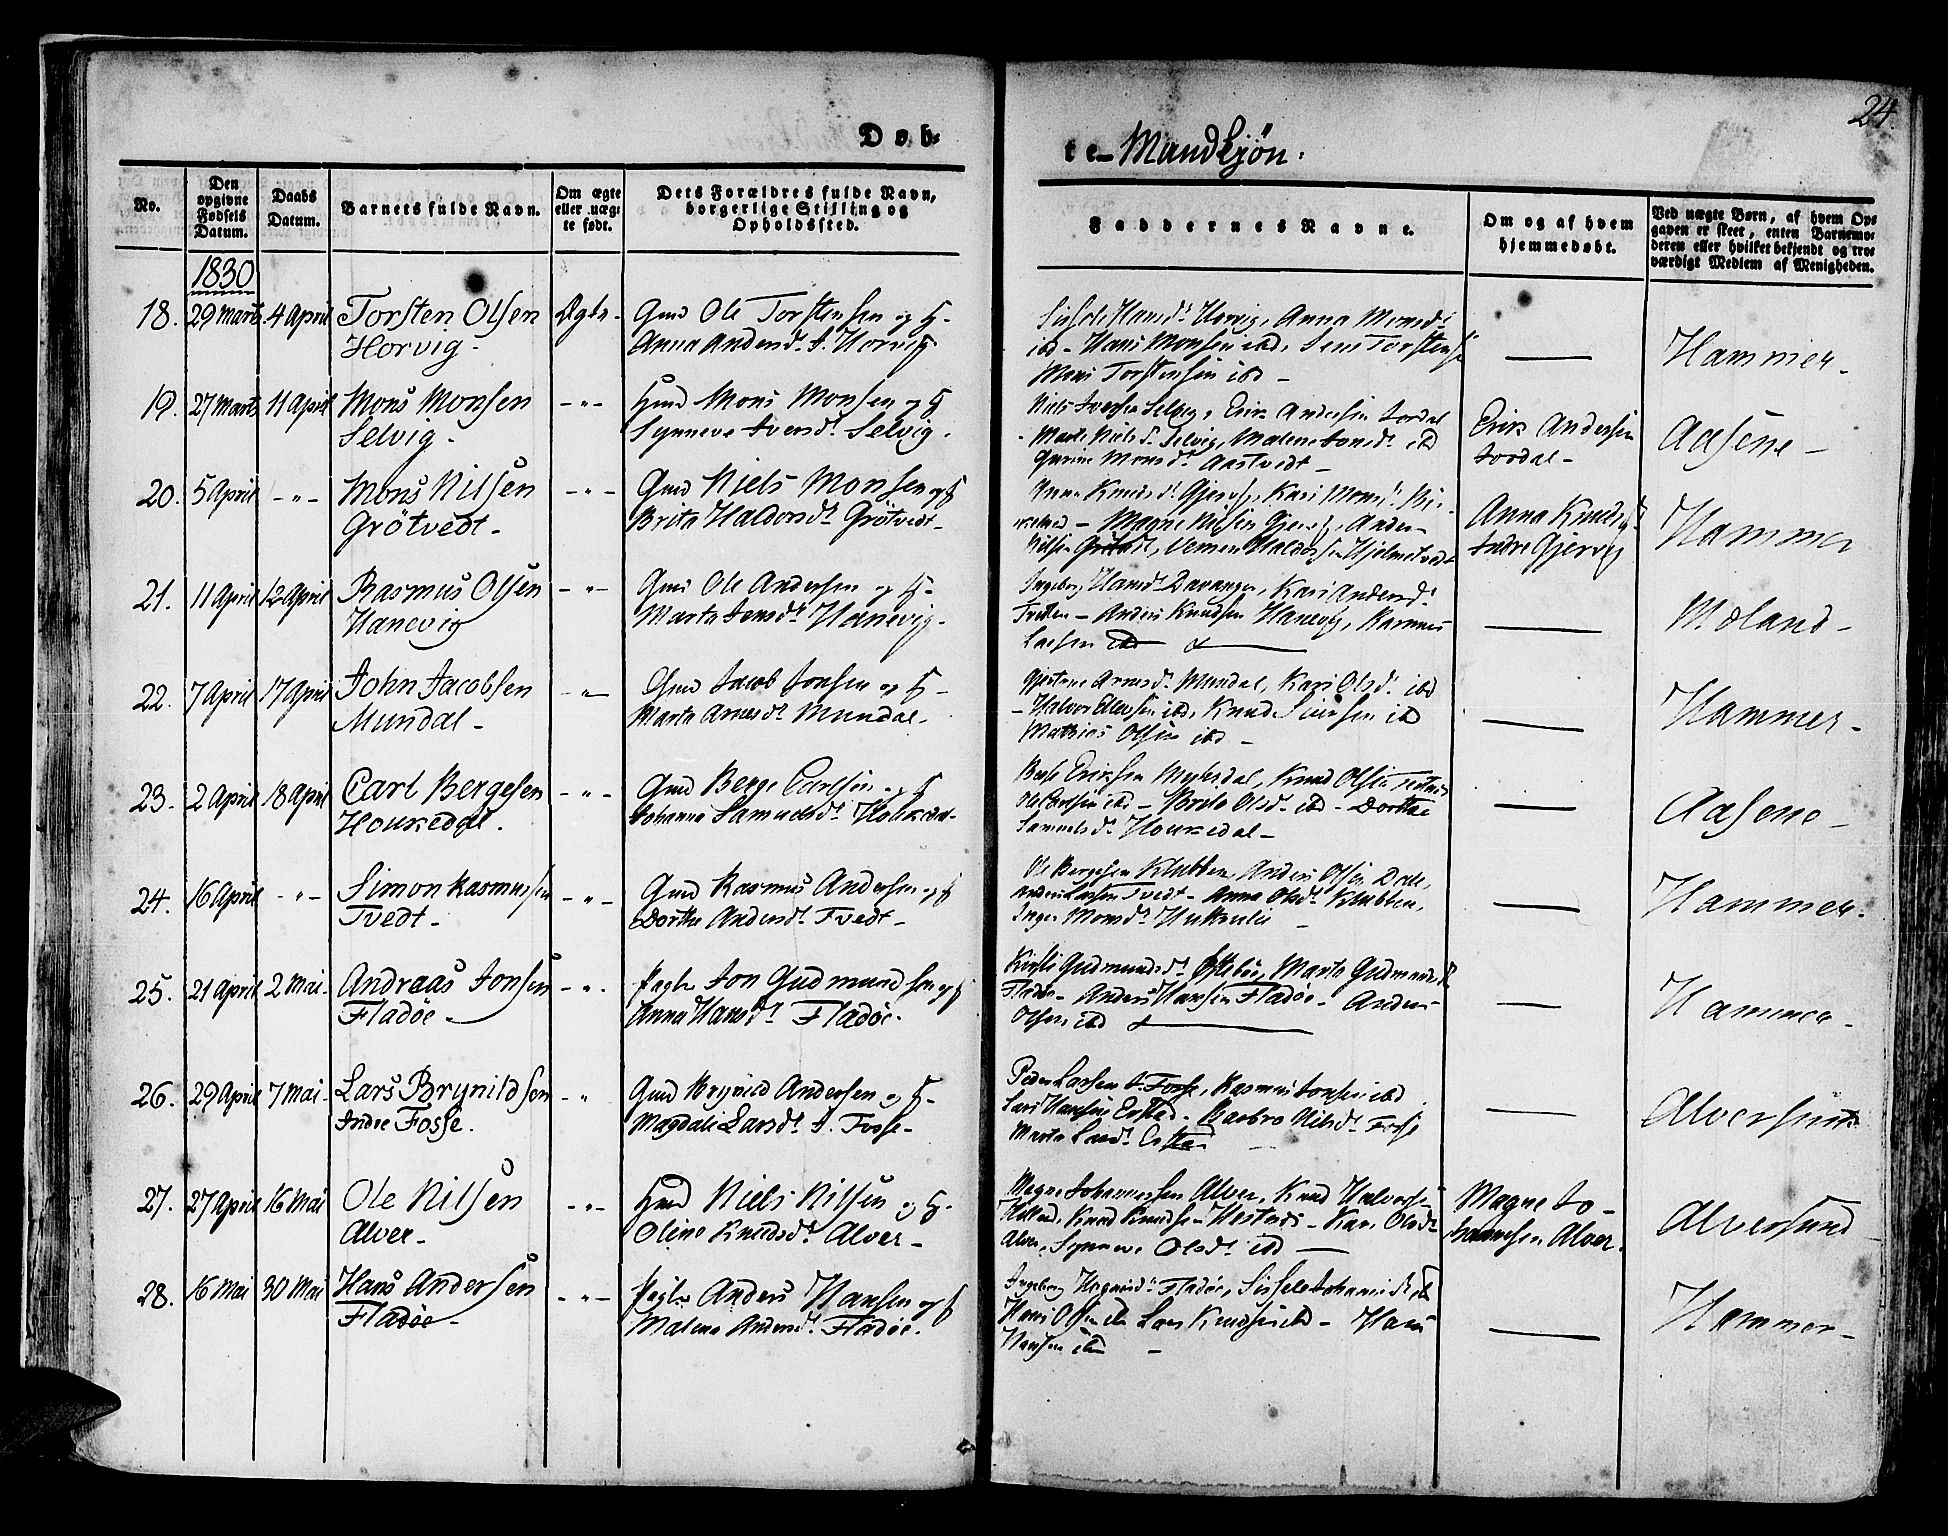 24.
Døb-
te- Mandkjøn.
No.
Den opgivne Fødsels Datum.
Daabs Datum.
Barnets fulde Navn.
Om ægte eller uægte født.
Dets Forældres fulde Navn, borgerlige Stilling og Opholdssted.
Faddernes Navne.
Om og af hvem hjemmedøbt.
Ved uægte Børn, af hvem Opgaven er skeet, enten Barnemoderen eller hvilket bekjendt og troværdigt Medlem af Menigheden.
1830
18. 29 Marts 4 April Torsten Olsen Ægte - Gmd Ole Torstensen og H-
Horvig - Anna Andersd. I. Horvig
Hans Monsen ibd,
Mons Torstensen ibd -
Hammer -
19. 27 Marts 11 April Mons Monsen -"- Hmd Mons Monsen og H
Selvig - Synneve Iversd. Selvig.
Niels Iversen Selvig, Erik Andersen Jordal
Marte Niels d. Selvig, Malene Jonsd. ibd
Gurine Monsd. Aastvedt -
Erik Andersen
Jordal -
Aasene -
20. 5 April -"- Mons Nilsen -"- Gmd Niels Monsen og H
Grötvedt - Brita Haldorsd. Grötvedt -
Anna Knudsd. Gjervig, Kari Monsd.
Magne Nilsen Gjervig, Anders
Nilsen Grötvedt, Haldorsen Hjelmtvedt
Anna Knudsd.
Indre Gjervig
Hammer
21. 11 April 12 April Rasmus Olsen -"- Gmd Ole Andersen og H-
Hanevig Marta Jensd. Hanevig -
Ingeborg Hansd. Davanger, Kari Andersd.
Tveten - Anders Knudsen Hanevig, Rasmus
Larsen ibd
Möland -
22. 7 April 17 April John Jacobsen -"- Gmd Jacob Jonsen og H-
Mundal - Marta Arnesd. Mundal -
Gjertrue Arnesd. Mundal, Kari Olsd. ibd
- Halvor Ellersen ibd, Knud Siursen ibd
Mathias Olsen ibd -
Hammer -
23. 2 April 18 April Carl Bergesen -"- Gmd Berge Carlsen og H
Houkedal. Johanna Samuelsd. Houkedal -
Erichsen Myksdal, Knud Olsen
Ole Carlsen ibd - Brite Olsd. ibd - Dorthe
Samuelsd. Houkedal -
Aasene -
24. 16 April -"- Simon Rasmussen -"- Gmd Rasmus Andersen og H
Tvedt - Dorthe Andersd. Tvedt -
Ole Bergesen Klubben, Anders Olsen Dale,
Anders Larsen Tvedt - Anna Olsd. Klubben,
Inger Monsd.
Hammer.
25. 21 April 2 Mai - Andreas Jonsen -"- Pagtr Jon Gudmundsen og H
Fladöe - Anna Hansd. Fladöe.
Kirsti Gudmundsd. Marta Gudmundsd.
Fladöe - Anders Hansen Fladöe - Anders
Olsen ibd
Hammer -
26. 29 April 7 Mai - Lars Brynildsen -" Gmd Brynild Andersen og H-
Indre Fosse. Magdali Larsd. I. Fosse -
Peder Larsen I. Fosse, Rasmus Jonsen ibd
Lars Hansen Erstad - Barbro Nilsd. Fosse
Marta Larsd.
Alversund
27. 27 April 16 Mai Ole Nilsen -"- Hmd Niels Nilsen og H-
Alver - Oline Knudsd. Alver -
Magne Johannessen Alver, Knud Halvorsen
Knud Knudsen - Kari Olsd.
Alver, Synneve Olsd. ibd -
Magne Jo-
hannesen Alver.
Alversund
28. 16 Mai 30 Mai Hans Andersen -"- Pagtr Anders Hansen og H
Fladöe - Malene Andersd. Fladöe.
Ingeborg Fladöe, Sissele Johannisd. ibd
Hans Olsen ibd Lars Knudsen ibd - Hans
Hansen ibd -
Hammer -